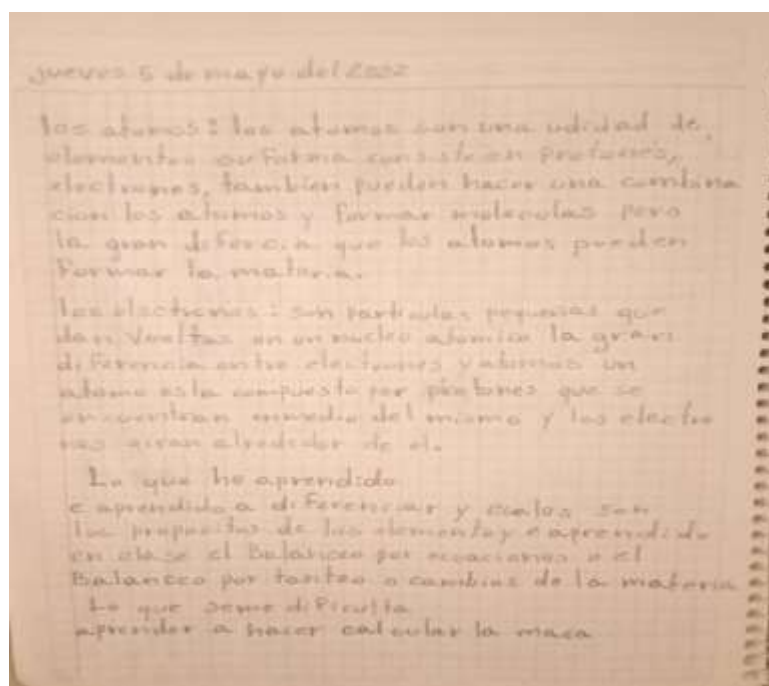 jueves 5 de mayo del 2022
los atomos: los atomos son una udidad de
elementos consiste en protones,
electrones, tambien pueden hacer una combina
cion los atomos y formar moleculas pero
la gran difercia que los atomos pueden
Formar la materia.
los electrones: son particulas pequeñas que
dan Vueltas en un nucleo atomico la gran
diferencia entre electrones y atomos un
atomo esta compuesto por protones que se
encuentran enmedio del mismo y los electro
nes giran alrededor de el.
Lo que he aprendido
e aprendido a diferenciar y cuales son
los propositos de los elementos e aprendido
en clase el Balanceo por ecuaciones o el
Balanceo por tanteo o cambios de la materia
Lo que seme dificulta
aprender a hacer calcular la masa